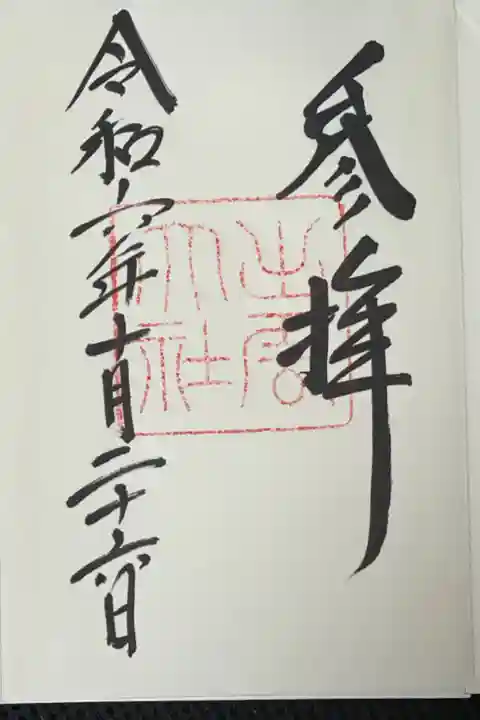 参拝
出雲
大社
令和六年十月二十六日